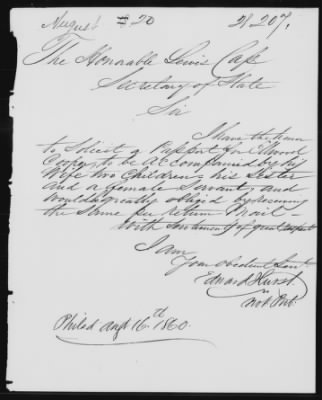 August 20 21.207.
The Honorable Lewis Cass
Secretary of State
Sir
I have the honor
to Solicit a Passport for Ellwood
Cooper, to be accompanied by his
Wife two Children, his Sister
and a female Servant, and
would be greatly obliged by receiving
the Same per return Mail -
With Sentiments of great respect
I am
Your obedient Servt
Edward Hurst
Not. Pub.
Philad Augt 16th 1860.